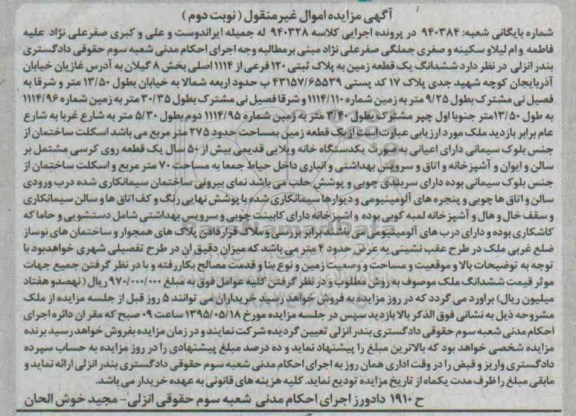 آگهی مزایده اموال غیرمنقول (نوبت دوم)
شماره بایگانی شعبه: ۹۴۰۳۸۴ در پرونده اجرایی کلاسه ۹۴۰۳۲۸ له جمیله ایراندوست و علی و کبری صفرعلی نژاد علیه
فاطمه و ام لیلا و سکینه و صغری جملگی صفرعلی نژاد مبنی برمطالبه وجه اجرای احکام مدنی شعبه سوم حقوقی دادگستری
بندر انزلی در نظر دارد ششدانگ یک قطعه زمین به پلاک ثبتی ۱۲۰ فرعی از ۱۱۱۴ اصلی بخش ۸ گیلان به آدرس غازیان خیابان
آذربایجان کوچه شهید جدی پلاک ۱۷ کد پستی ۴۳۱۵۷/۶۵۵۳۹ ب حدود اربعه شمالا به خیابان بطول ۱۳/۵۰ متر و شرقا به
فصیل نی مشترک بطول ۹/۲۵ متر به زمین شماره ۱۱۱۴/۱۱۰ و شرقا فصیل نی مشترک بطول ۳۰/۳۵ متر به زمین شماره ۱۱۱۴/۹۶
به طول ۱۳/۵۰ متر جنوبا اول چپر مشترک بطول ۳/۴۰ متر به زمین شماره ۱۱۱۴/۹۵ دوم بطول ۵/۳۰ متر به شارع غربا به شارع
عام برابر بازدید ملک مورد ارزیابی عبارت است از یک قطعه زمین بمساحت حدود ۲۷۵ متر مربع می باشد اسکلت ساختمان از
جنس بلوک سیمانی دارای اعیانی به صورت یکدستگاه خانه ویلایی قدیمی بیش از ۵۰ سال یک قطعه روی کرسی مشتمل بر
سالن و ایوان و آشپزخانه و اتاق و سرویس بهداشتی و انباری داخل حیاط جمعا به مساحت ۷۰ متر مربع و اسکلت ساختمان از
جنس بلوک سیمانی بوده دارای سربندی چوبی و پوشش حلب می باشد نمای بیرونی ساختمان سیمانکاری شده درب ورودی
سالن و اتاق ها چوبی و پنجره های آلومینیومی و دیوارها سیمانکاری شده با پوشش نهایی رنگ و کف اتاق ها و سالن سیمانکاری
و سقف خال و هال و آشپزخانه لمبه کوبی بوده و آشپزخانه دارای کابینت چوبی و سرویس بهداشتی شامل دستشویی و حمام که
کاشکاری بوده و دارای درب های آلومینیومی می باشد، برابر بررسی و ملاک قراردادن پلاک های همجوار و ساختمان های نوساز
ضلع غربی ملک در طرح عقب نشینی به عرض حدود ۴ متر می باشد که میزان دقیق ان در طرح تفصیلی شهری خواهدبود با
توجه به توضیحات بالا و موقعیت و مساحت و وسعت زمین و نوع بنا و قدمت مصالح بکاررفته و با در نظر گرفتن جمیع جهات
موثر قیمت ششدانگ ملک موصوف به روش مطلوب و در نظر گرفتن کلیه عوامل فوق به مبلغ ۹۷۰/۰۰۰/۰۰۰ ریال (نهصدو هفتاد
میلیون ریال) براورد می گردد که در روز مزایده به فروش خواهد رسید خریداران می توانند ۵ روز قبل از جلسه مزایده از ملک
مشروحه ذیل به نشانی فوق الذکر بالا بازدید سپس در جلسه مزایده مورخ ۱۳۹۵/۰۵/۱۸ ساعت ۰۹ صبح که مقر ان دائره اجرای
احکام مدنی شعبه سوم حقوقی دادگستری بندر انزلی تعیین گردیده شرکت نمایند و در زمان مزایده بفروش خواهد رسید برنده
مزایده شخصی خواهد بود که بالاترین مبلغ را پیشنهاد نماید و ده درصد مبلغ پیشنهادی را در روز مزایده به حساب سپرده
دادگستری واریز و قبض را در وقت اداری همان روز به اجرای احکام مدنی شعبه سوم حقوقی دادگستری بندر انزلی ارائه نماید و
مابقی مبلغ را ظرف مدت یکماه از تاریخ مزایده تودیع نماید. کلیه هزینه های قانونی به عهده خریدار می باشد.
ح ۱۹۱۰ دادورز اجرای احکام مدنی شعبه سوم حقوقی انزلی- مجید خوش الحان